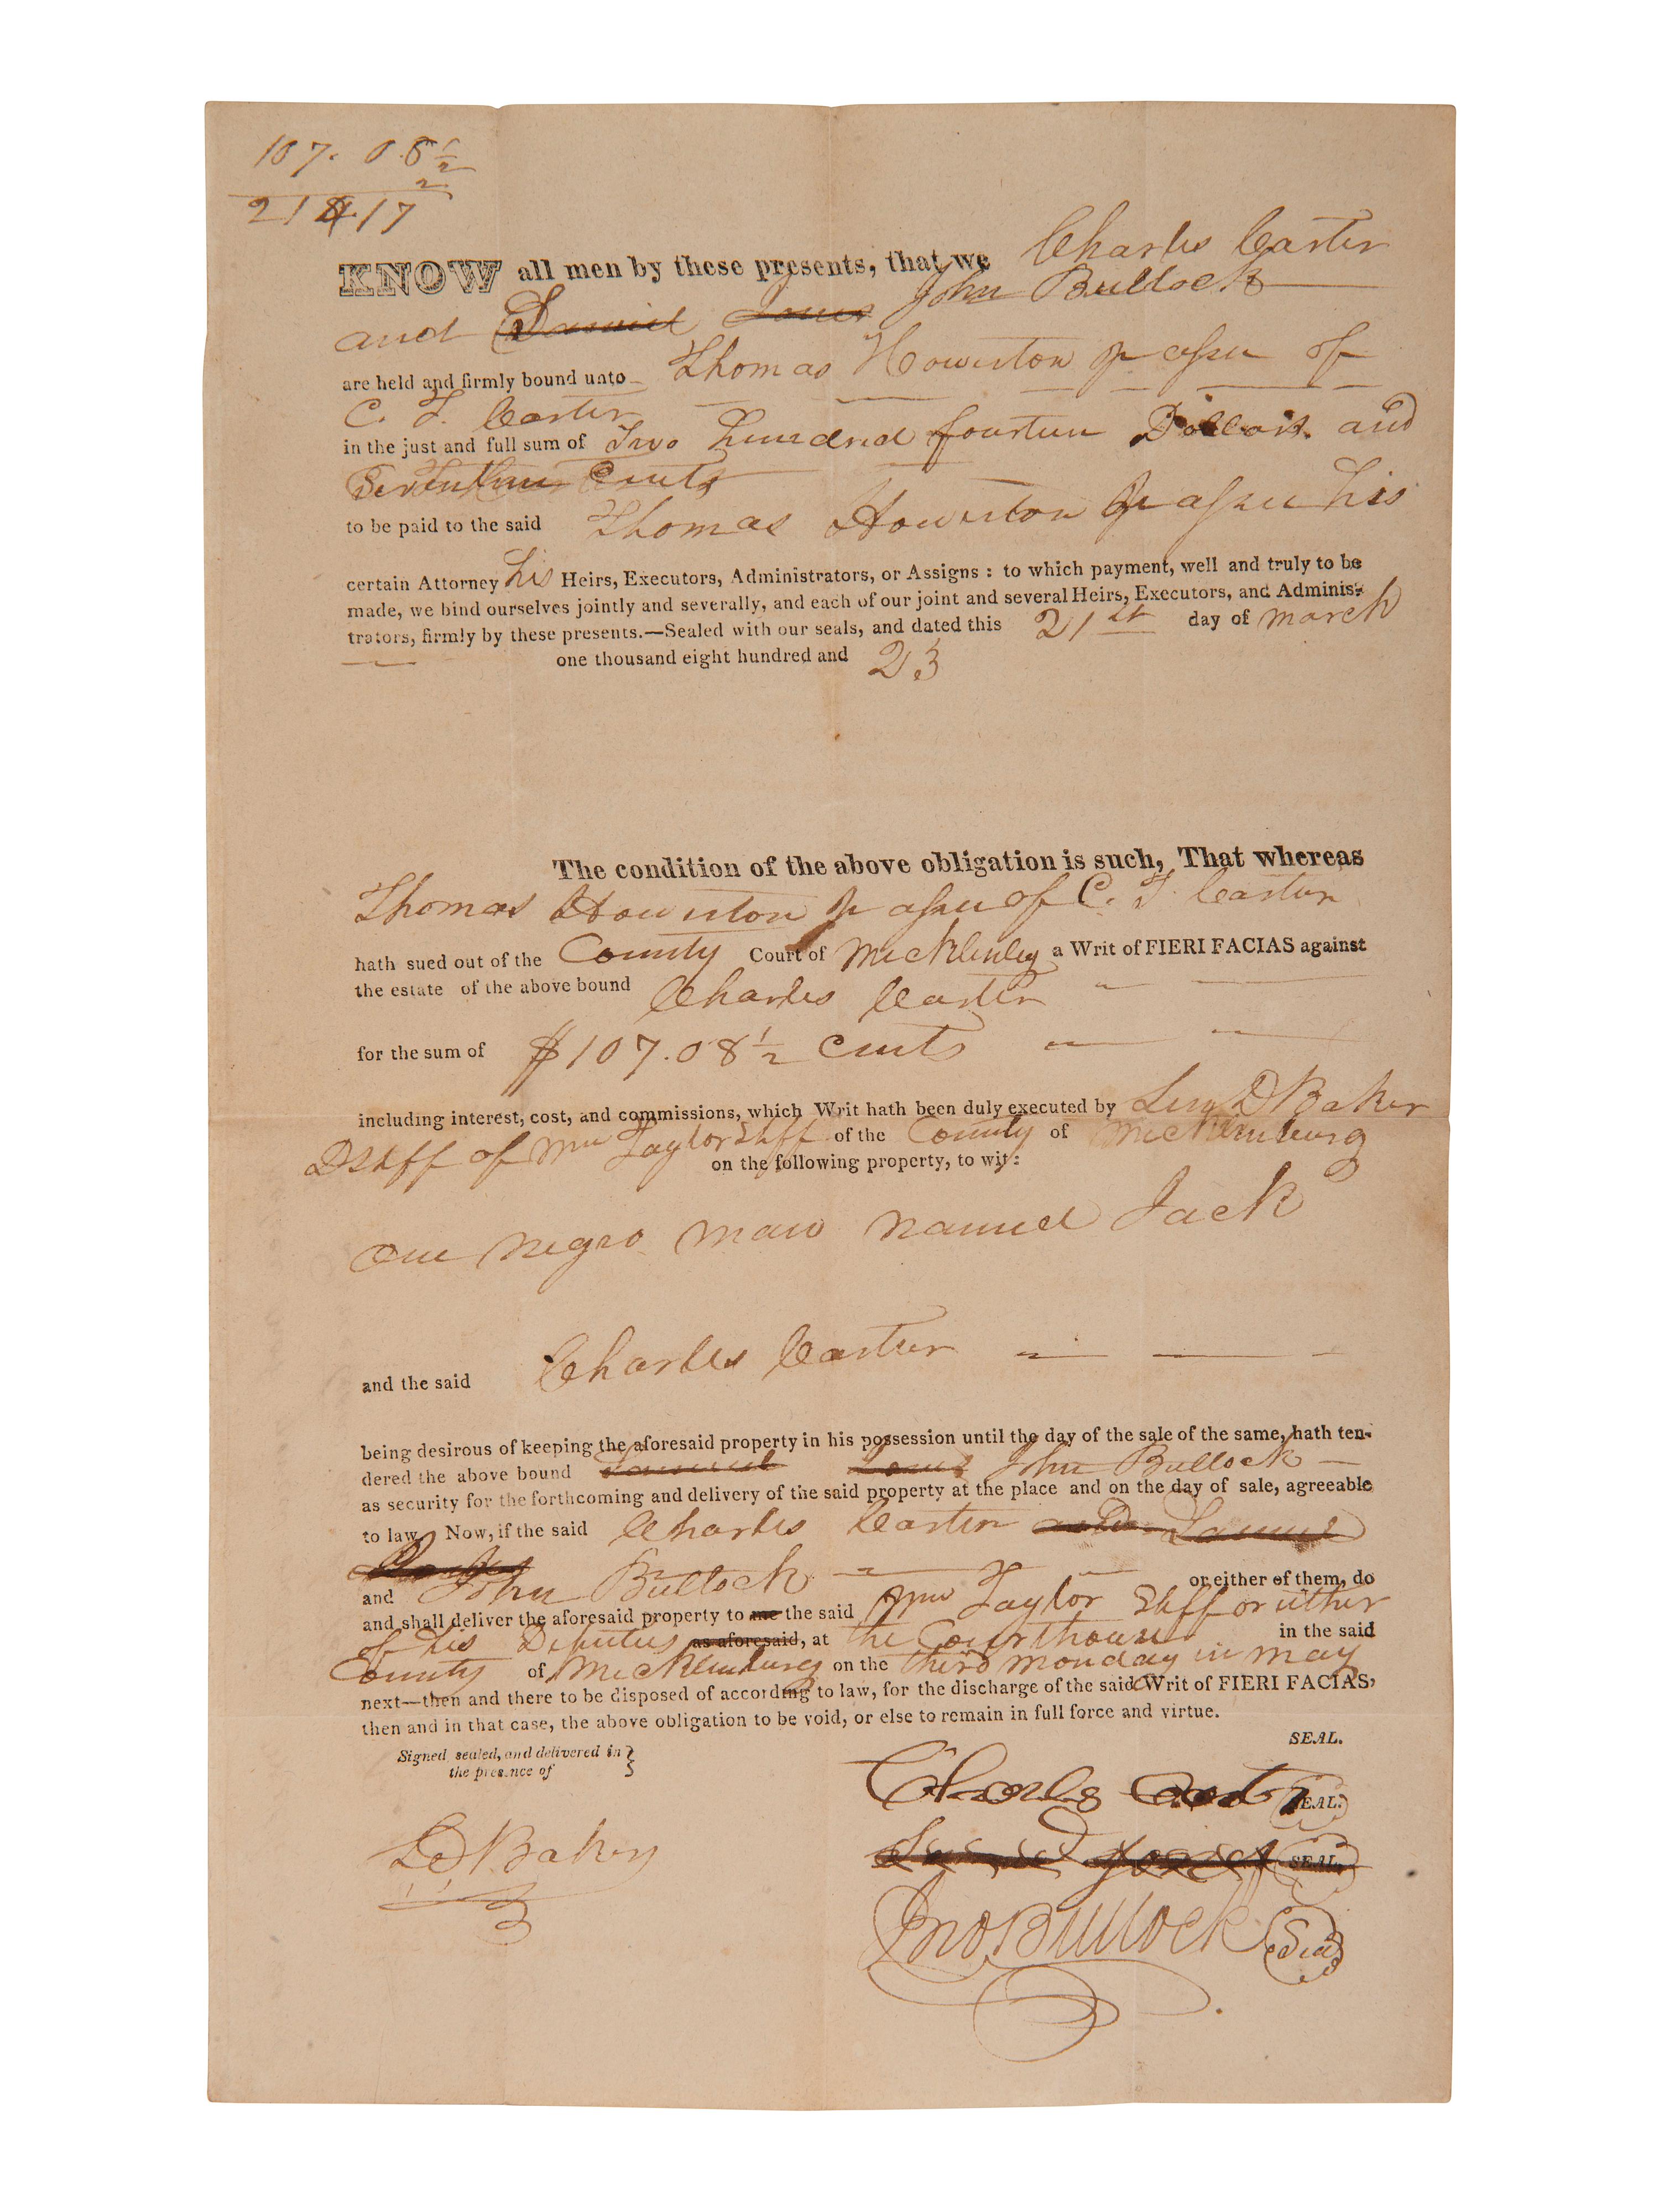 107. 08½
2
214.17
KNOW all men by these presents, that we Charles Carter
and John Bullock
are held and firmly bound unto Thomas Howerton of
C. T. Carter
in the just and full sum of Two hundred fourteen Dollars and
Seventeen Cents
to be paid to the said Thomas Howerton his
certain Attorney his Heirs, Executors, Administrators, or Assigns : to which payment, well and truly to be
made, we bind ourselves jointly and severally, and each of our joint and several Heirs, Executors, and Adminis-
trators, firmly by these presents.—Sealed with our seals, and dated this 21st day of march
one thousand eight hundred and 23
The condition of the above obligation is such, That whereas
Thomas Howerton of C. T. Carter
hath sued out of the County Court of a Writ of FIERI FACIAS against
the estate of the above bound Charles Carter
for the sum of $107.08½ Cents
including interest, cost, and commissions, which Writ hath been duly executed by D Baker
DShff of Wm Taylor Shff of the County of Mecklenburg
on the following property, to wit:
One negro man named Jack
and the said Charles Carter
being desirous of keeping the aforesaid property in his possession until the day of the sale of the same, hath ten-
dered the above bound John Bullock
as security for the forthcoming and delivery of the said property at the place and on the day of sale, agreeable
to law. Now, if the said Charles Carter
and John Bullock or either of them, do
and shall deliver the aforesaid property to me the said Wm Taylor Shff or either
of his Deputies as aforesaid, at the Courthouse in the said
County of Mecklenburg on the third monday in may
next—then and there to be disposed of according to law, for the discharge of the said Writ of FIERI FACIAS,
then and in that case, the above obligation to be void, or else to remain in full force and virtue.
SEAL.
Signed sealed, and delivered in }
the presence of
Charles Carter SEAL.
SEAL.
L D Baker
Jno Bullock Seal